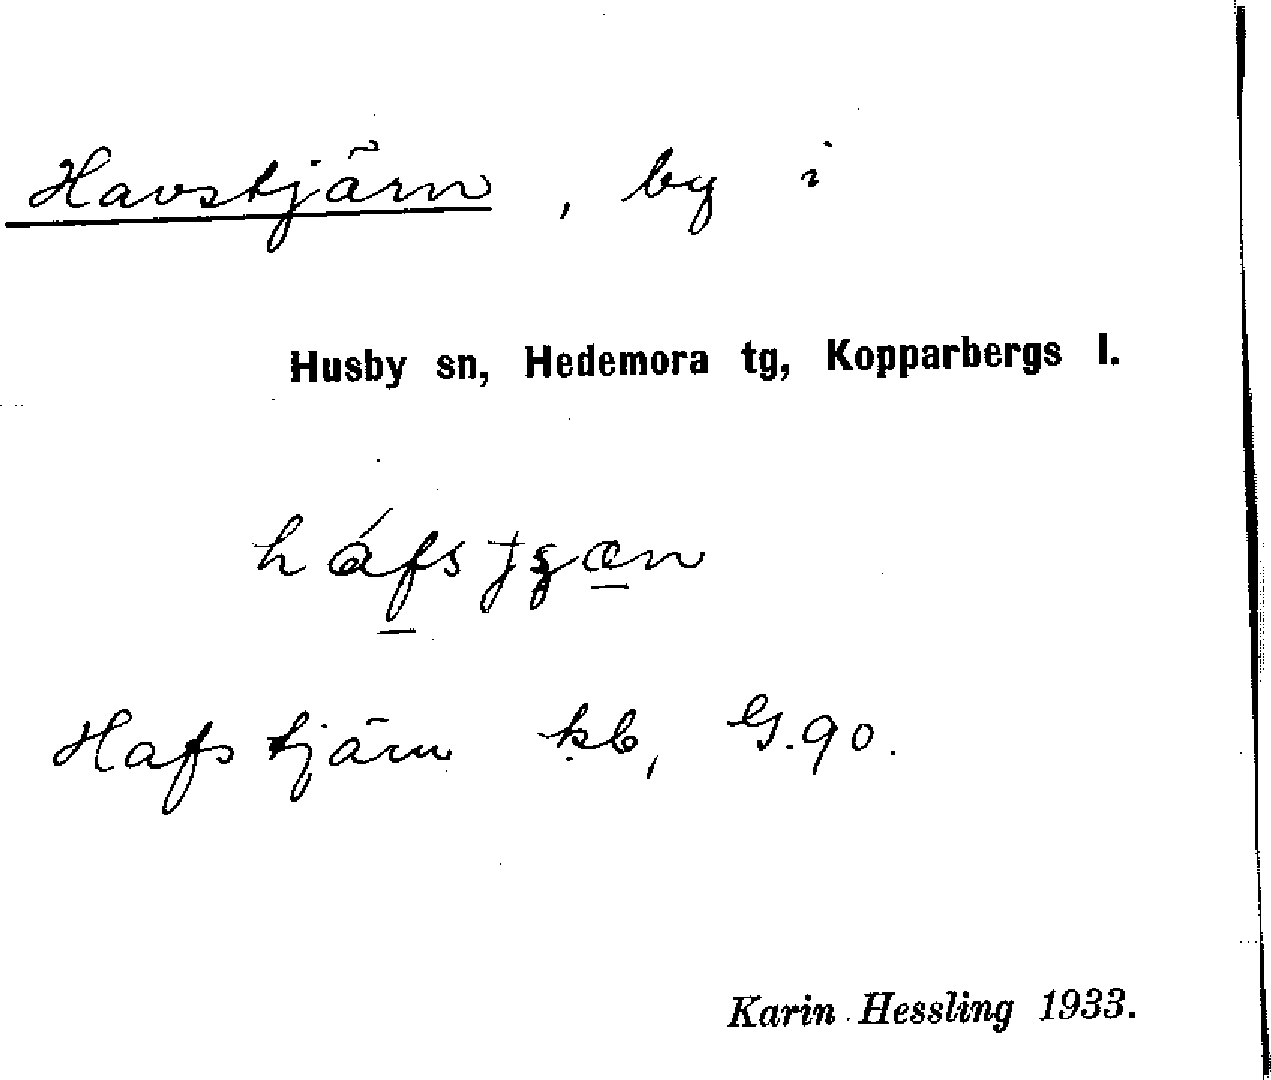 Havstjärn, by i
Husby sn, Hedemora tg, Kopparbergs l.
Hafstjärn kb, G.90.
Karin Hessling 1933.